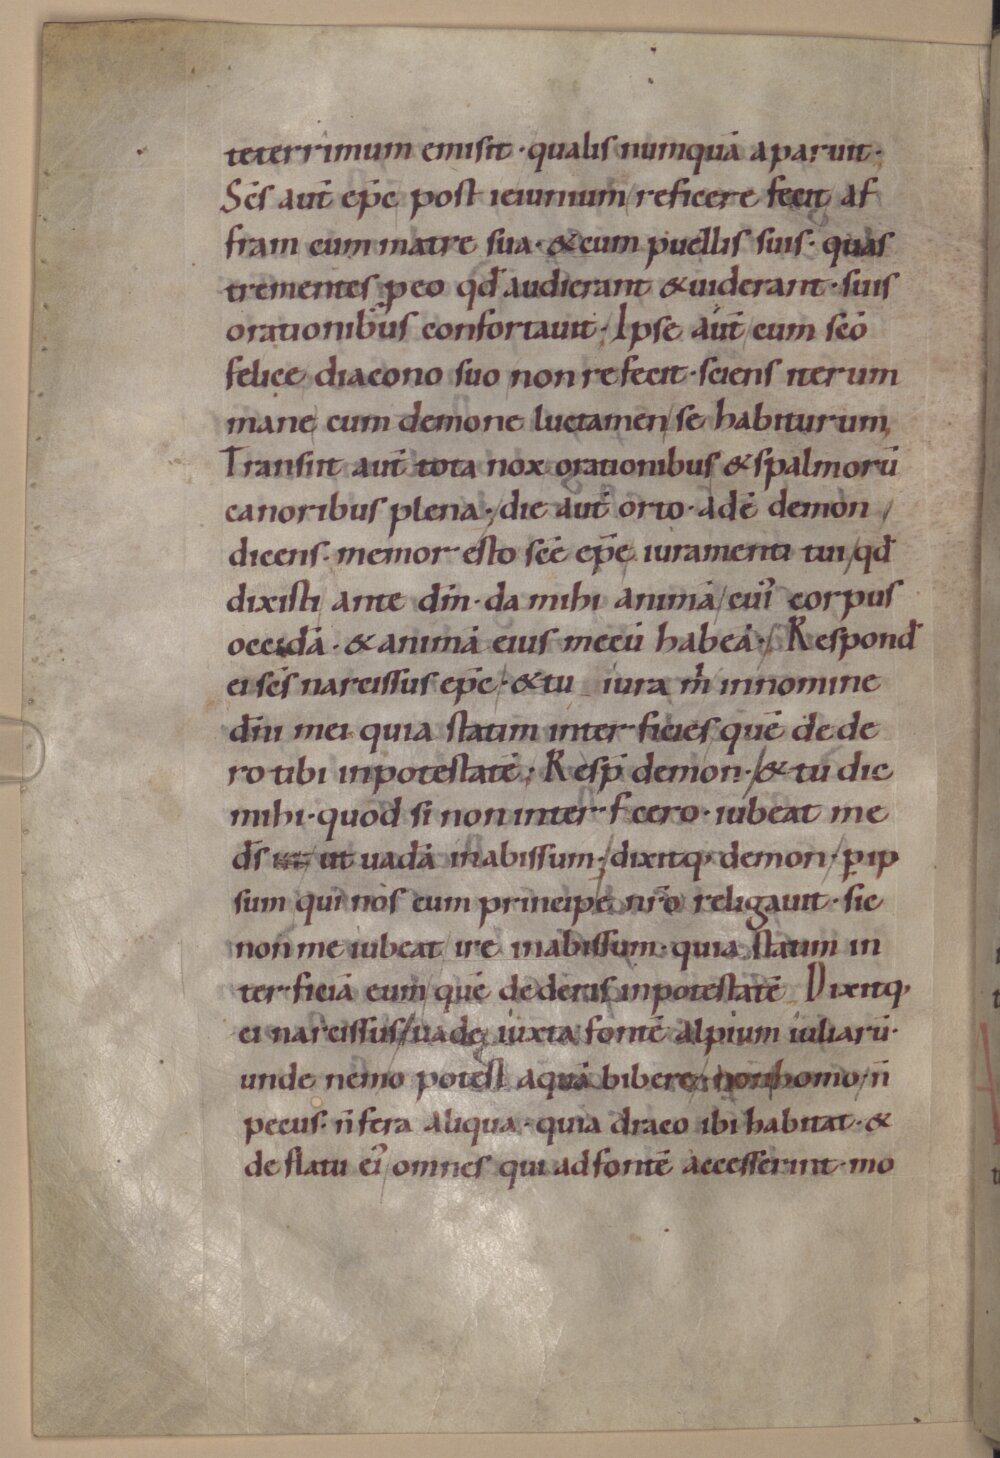 teterrimum emisit · qualis numquā aparuit ·
Sc̄s aut̄ ep̄c post ieiunium reficere fecit af
fram cum matre sua · & cum puellis suis · quas
trementes peo qd̄ audierant & uiderant · suis
orationibus confortauit · Ipse aut̄ cum sc̄o
felice diacono suo non refecit · sciens iterum
mane cum demone luctamen se habiturum
Transiit aut̄ tota nox orationibus & spalmorū
canoribus plena · / die aut̄ orto · adē demon /
dicens · memor esto sc̄e ep̄e iuramenti tui / qd̄
dixisti ante dm̄ · da mihi animā / cui᾽ corpus
occidā · & animā eius mecū habeā · / Respond̄
ei sc̄s narcissus ep̄c · & tu iura m̄ innomine
dn̄i mei quia statim interficies quē dede
ro tibi inpotestatē ; Resp̄ demon · / & tu dic
mihi · quod si non interfcero · iubeat me
d̄s ut ut uadā inabissum · / dixitq; demon · / ꝑ ip
sum qui nos cum principe nr̄o religauit · sic
non me iubeat ire inabissum · quia statim in
terficiā eum quē dederis inpotestatē Dixitq;
ei narcissus / uade iuxta fontē alpium iuliarū ·
unde nemo potest aquā bibere · / non homo / n̄
pecus · n̄ fera aliqua · quia draco ibi habitat · &
de flatu ei᾽ omnes qui ad fontē accesserint · mo